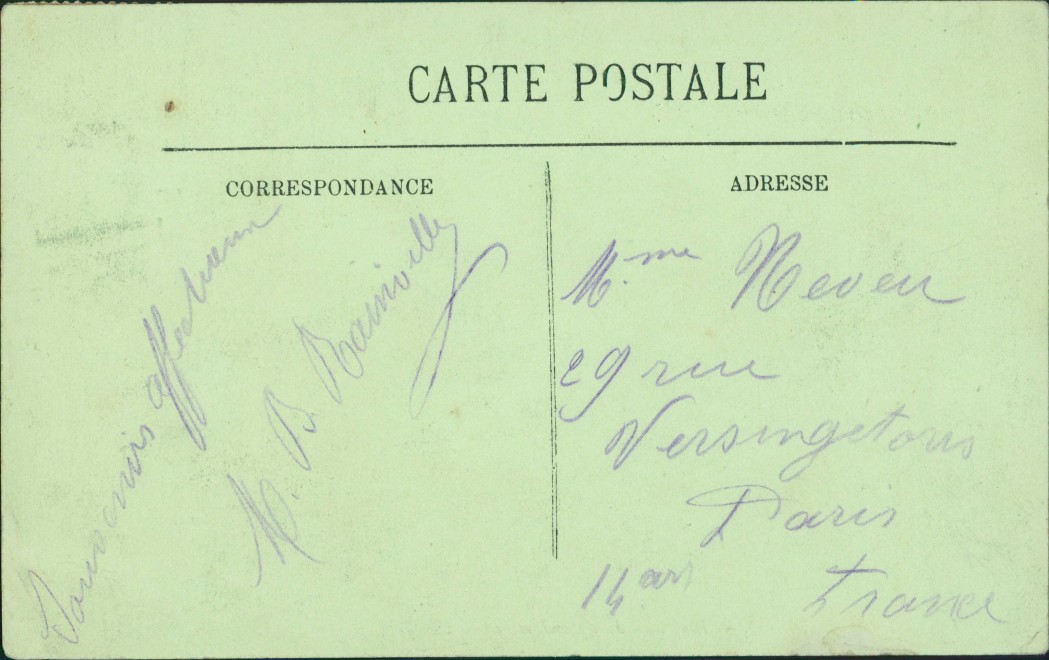 CARTE POSTALE
CORRESPONDANCE
Souvenirs affectueux
M. B. Rainville
ADRESSE
Mme Neveu
29 rue
Versingetoris
Paris
14 arr
France